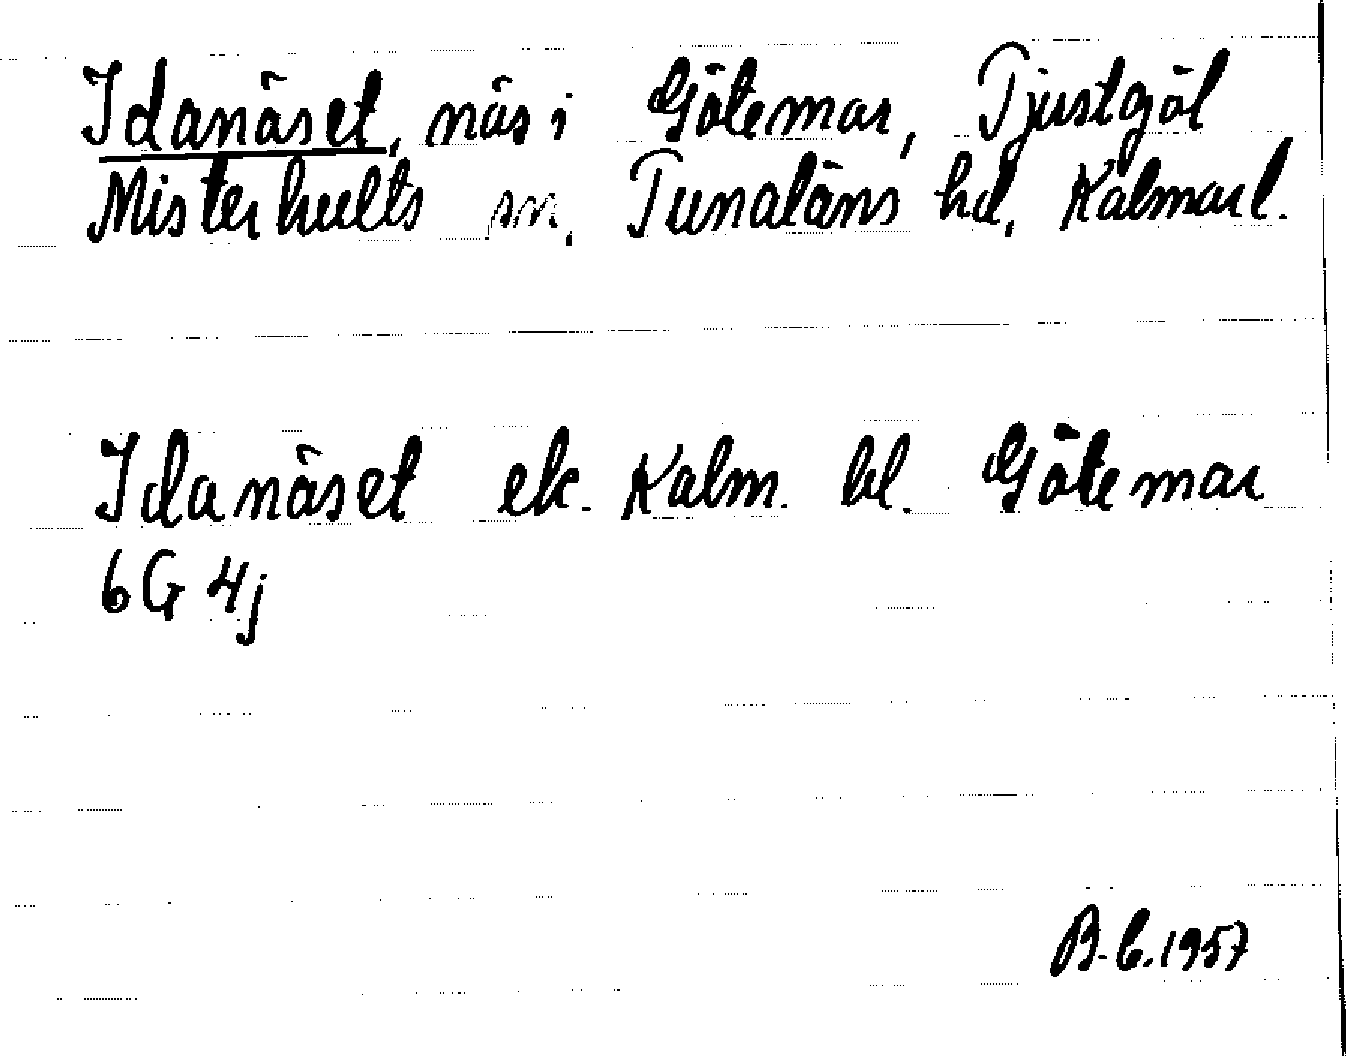 Idanäset, näs i Götemar, Tjustgöl
Misterhults sn, Tunaläns hd, Kalmar l.
Idanäset ek. Kalm. bl. Götemar
6G 4j
B.C. 1957